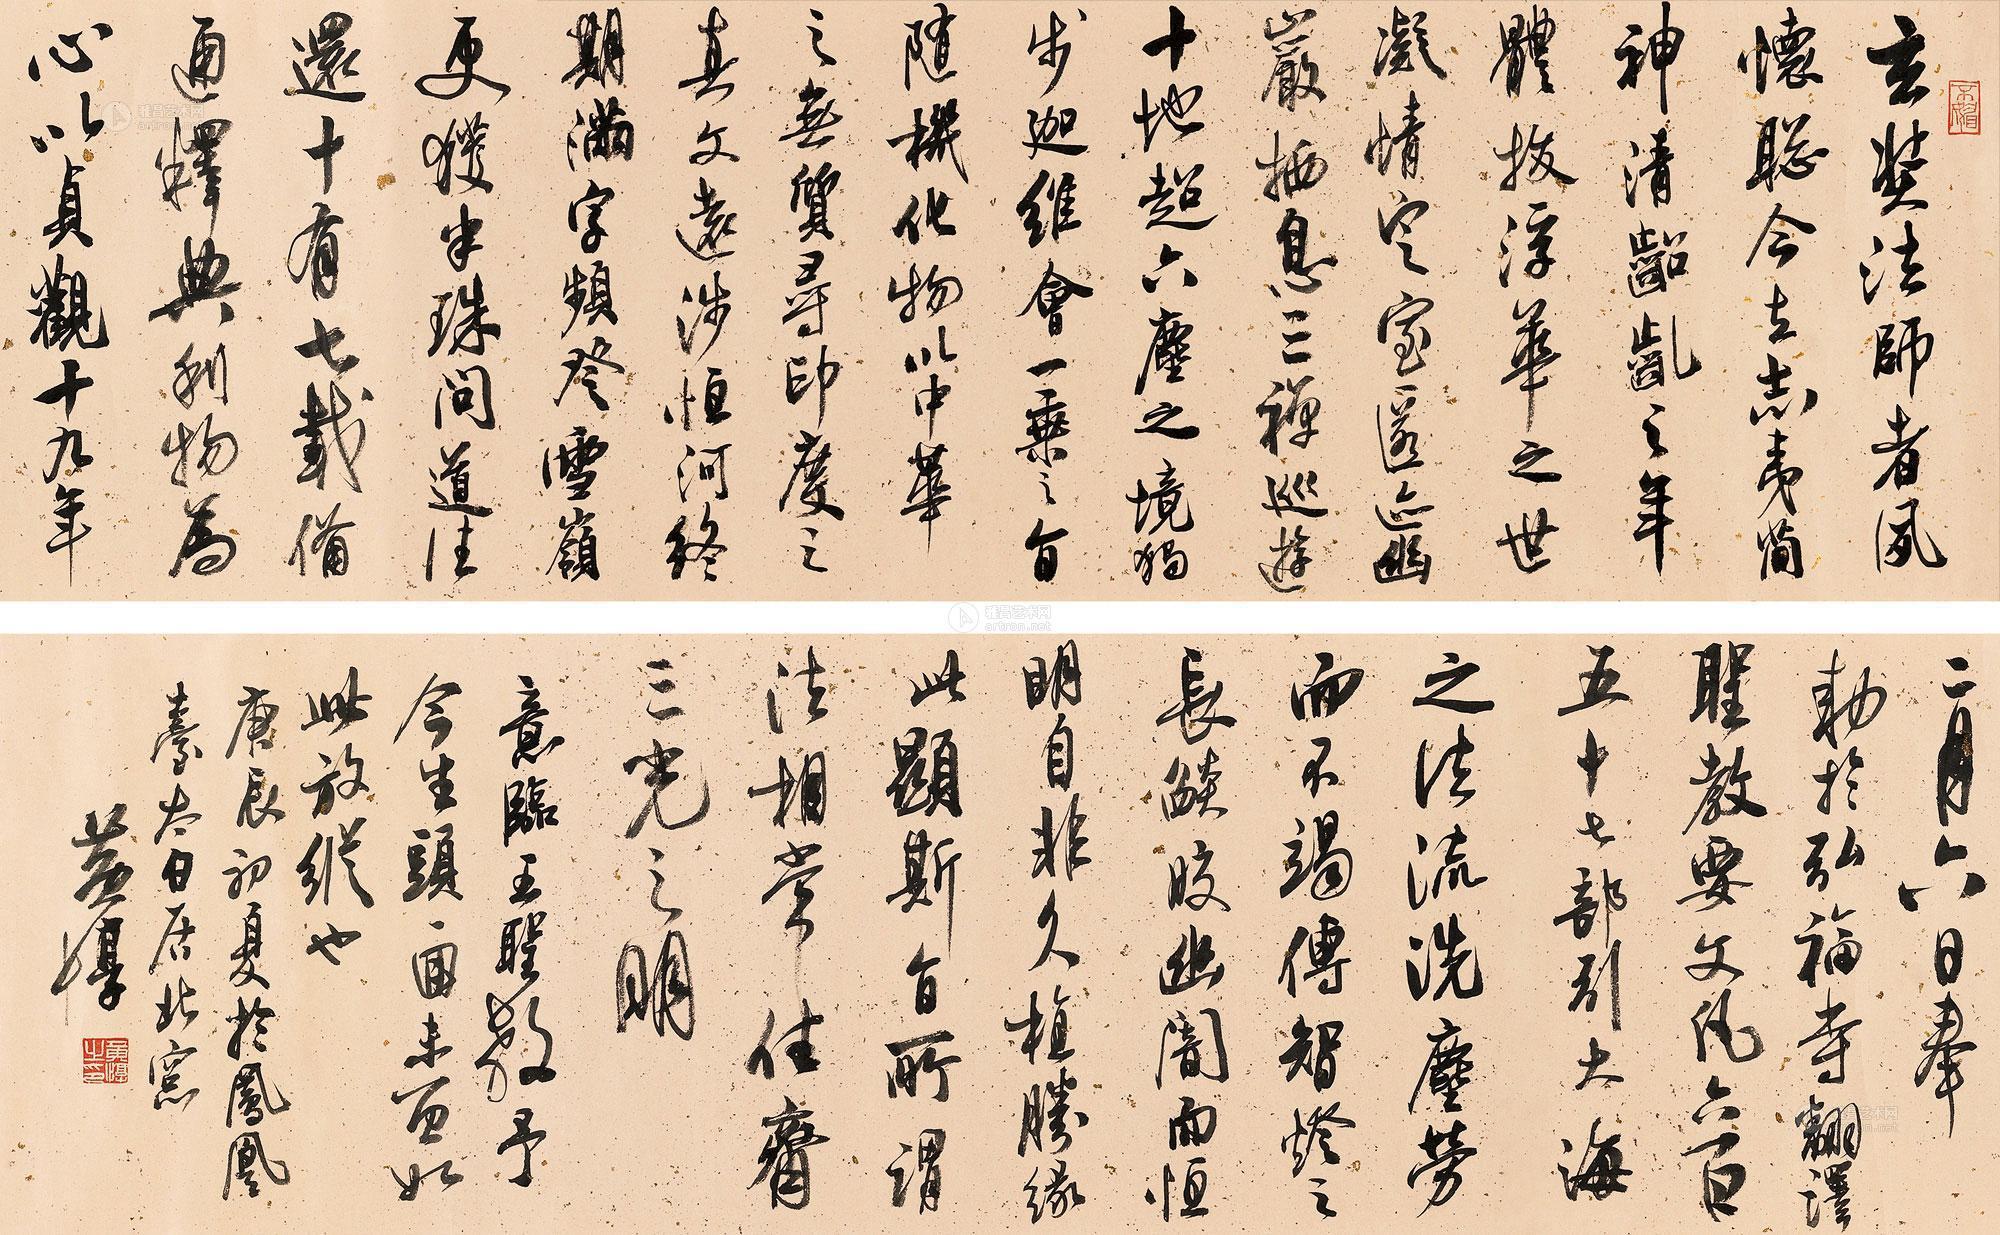 玄奘法師者夙
懷聡令立志夷簡
神清齠齓之年
體拔浮華之世
凝情定室匿迹幽
巖栖息三禪巡遊
十地超六塵之境獨
步迦維會一乘之旨
随機化物以中華
之無質尋印度之
真文遠涉恒河終
期滿字頻登雪嶺
更獲半珠問道法
還十有七載俻
通釋典利物為
心以貞觀十九年
二月六日奉
勅於弘福寺翻譯
聖教要文凡六百
五十七部引大海
之法流洗塵勞
而不竭傳智燈之
長燄皎幽闇而恒
明自非久植勝緣
此顯斯旨所謂
法相常住齊
三光之明
意臨王聖教予
今生頭一回未有如
此放縱也
庚辰初夏於鳳凰
臺太白居北窓
黄惇
雅昌艺术网
artron.net